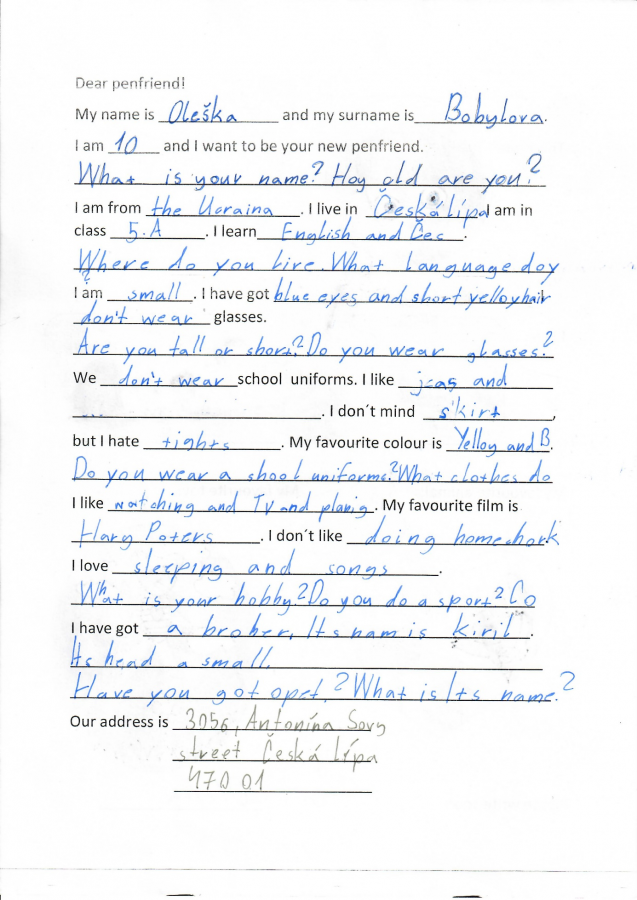 Dear penfriend!
My name is Oleška and my surname is Bobylova.
I am 10 and I want to be your new penfriend.
What is your name? Hoy old are you?
I am from the Ucraina. I live in Česká Lípa I am in
class 5.A. I learn English and Čes.
Where do you live. What language doy
I am small. I have got blue eyes and short yelloyhair
don't wear glasses.
Are you tall or short? Do you wear glasses?
We don't wear school uniforms. I like jeas and
... . I don´t mind skirt,
but I hate tights. My favourite colour is Yelloy and B.
Do you wear a shool uniforme? What clothes do
I like watching and TV and planig. My favourite film is
Hary Poters. I don´t like doing homechork
I love sleeping and songs.
What is your hobby? Do you do a sport? Co
I have got a broher, Its nam is Kiril.
Its head a small.
Have you got opet.? What is Its name?
Our address is 3056, Antonína Sovy
street Česká Lípa
470 01